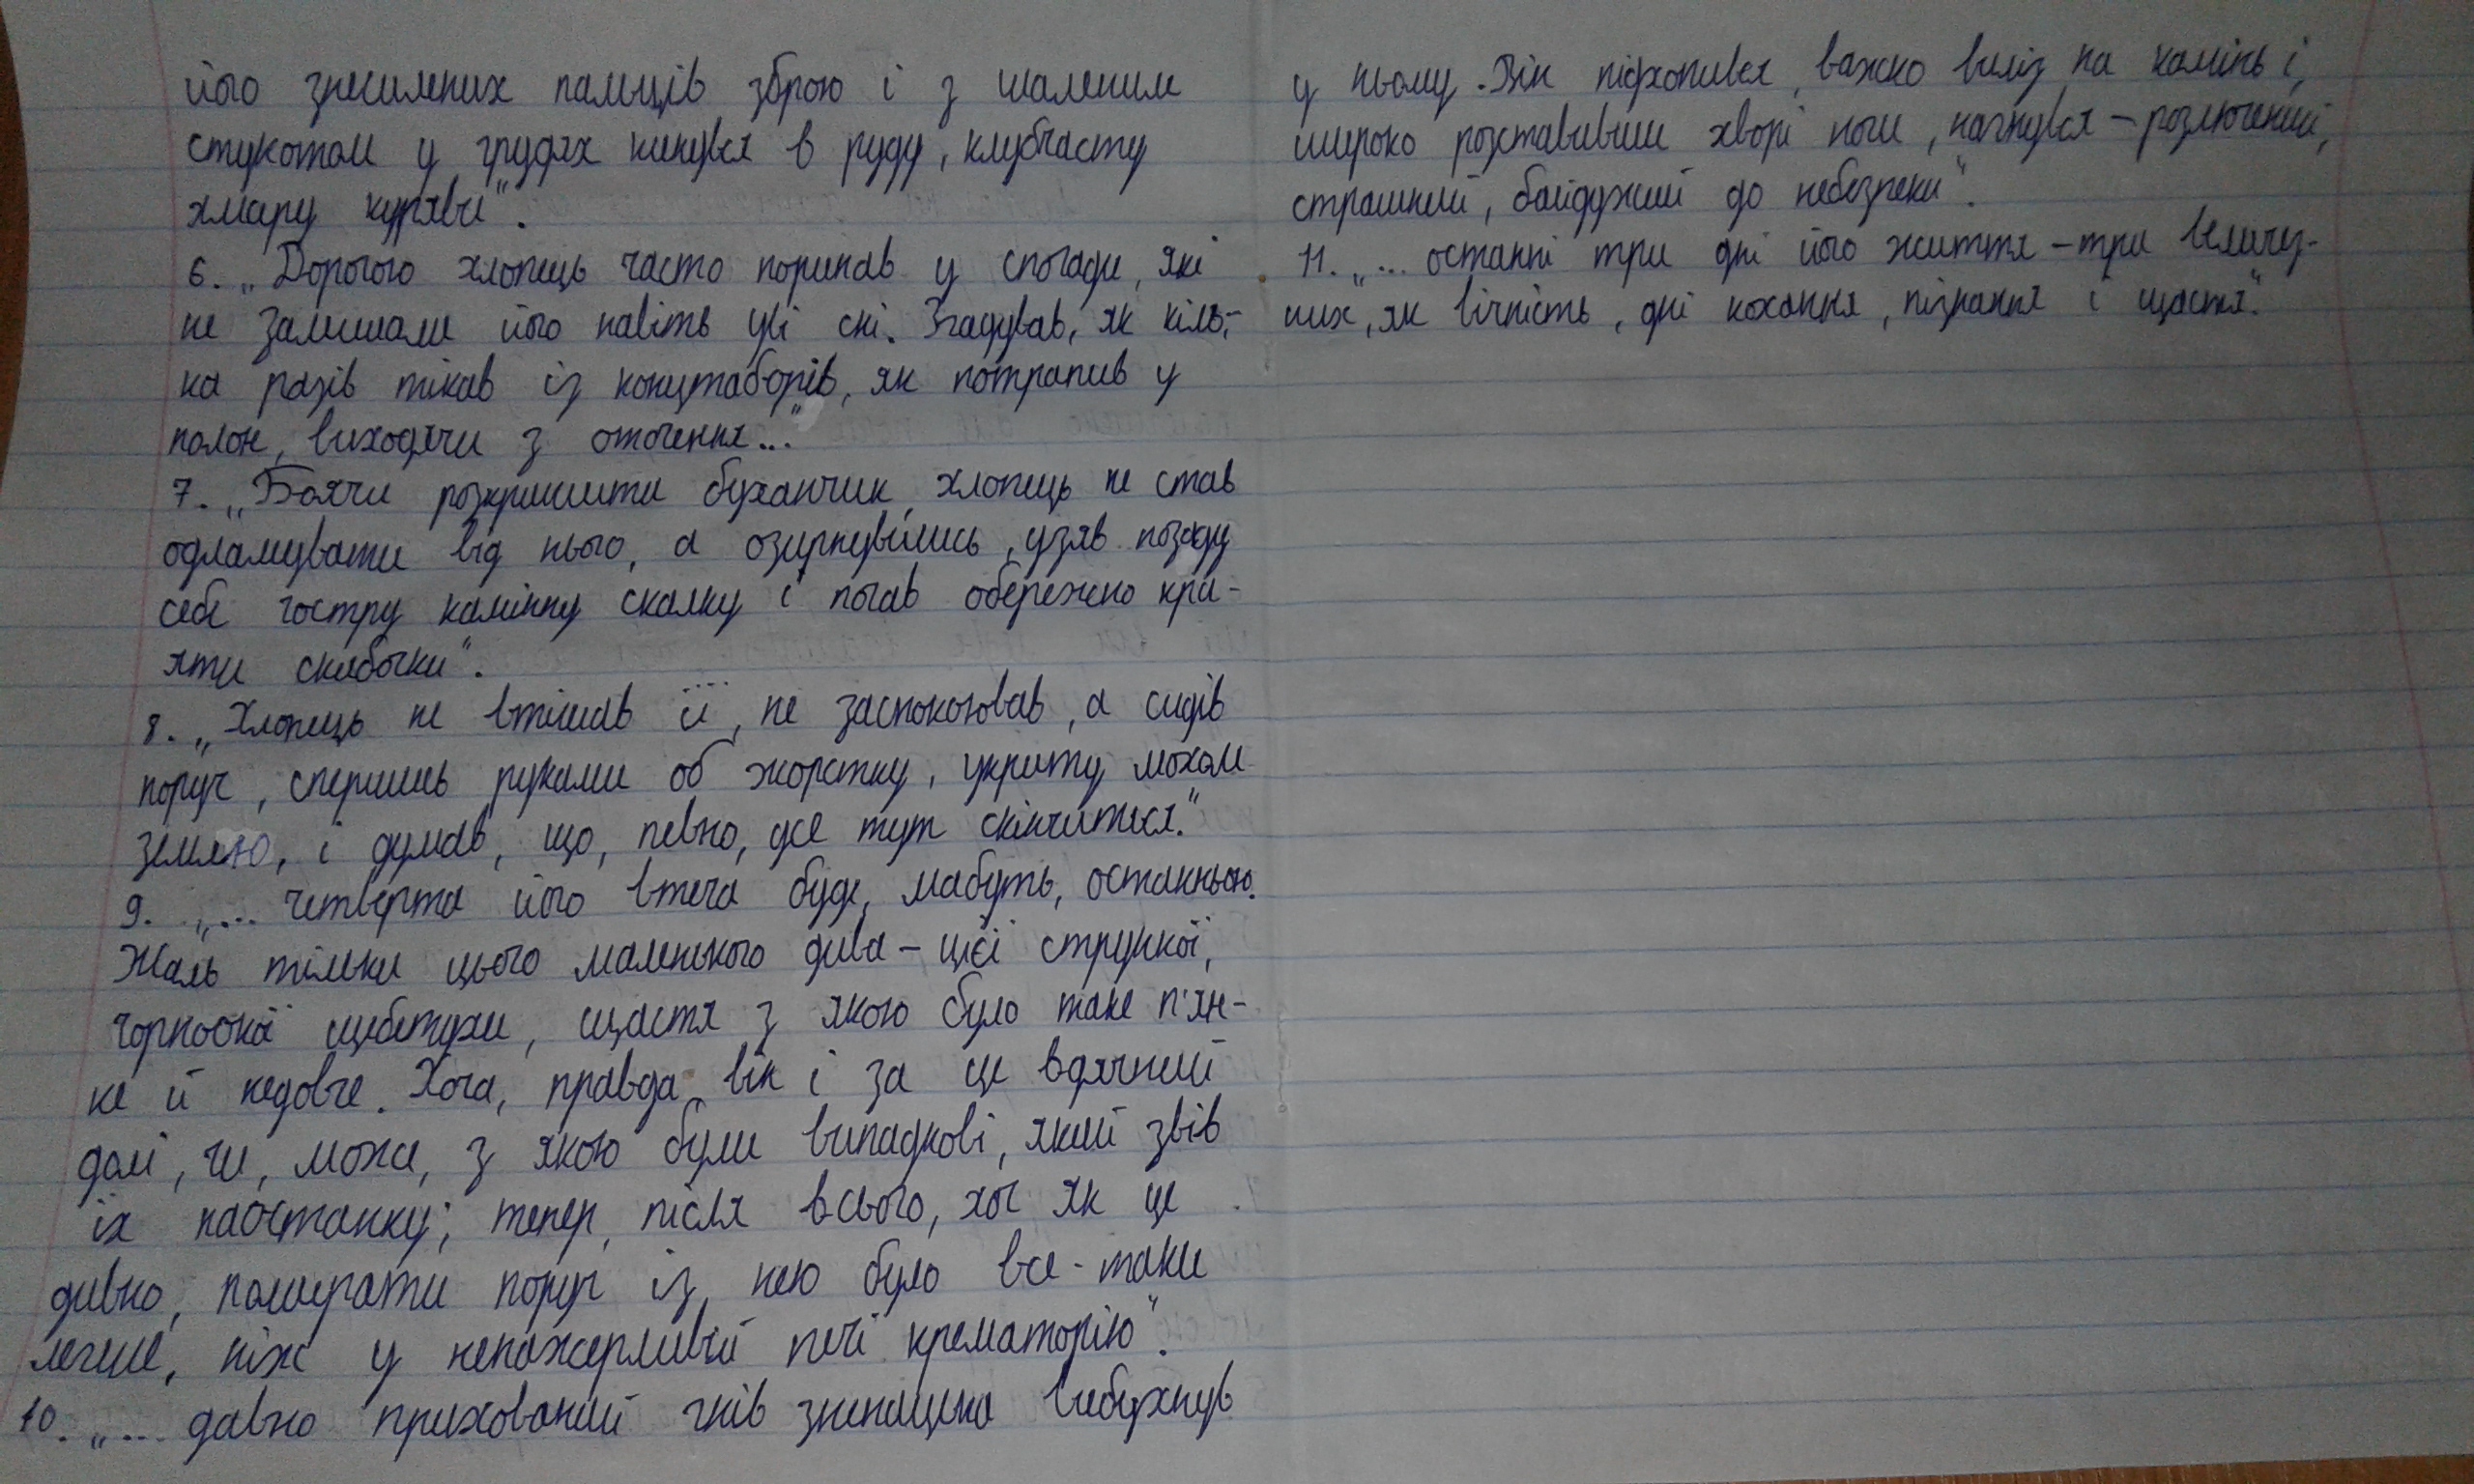 його знесилених пальців зброю і з шаленим
стукотом у грудях кинувся в руду, клубчасту
хмару куряви".
6. „Дорогою хлопець часто поринав у спогади, які
не залишали його навіть уві сні. Згадував, як кіль-
ка разів тікав із концтаборів, як потрапив у
полон, виходячи з оточення..."
7. „Боячи розкришити буханчик, хлопець не став
одламувати від нього, а озирнувшись, узяв позаду
себе гостру камінну скалку і почав обережно кра-
яти скибочки".
8. „Хлопець не втішав її, не заспокоював, а сидів
поруч, спершись руками об жорстку, укриту мохом
землю, і думав, що, певно, усе тут скінчиться."
9. „... четверта його втеча буде, мабуть, останньою.
Жаль тільки цього маленького дива – цієї стрункої,
чорноокої щебетухи, щастя з якою було таке п'ян-
ке й недовге. Хоча, правда, він і за це вдячний
долі, чи, може, з якою були випадкові, який звів
їх наостанку; тепер, після всього, хоч як це
дивно, помирати поруч із нею було все-таки
легше, ніж у ненажерливій печі крематорію".
10. „... давно прихований гнів зненацька вибухнув
у ньому. Він підхопився, важко виліз на камінь і,
широко розставивши хворі ноги, нагнувся – розлючений,
страшний, байдужий до небезпеки".
11. „... останні три дні його життя – три велич з-
них, як вічність, дні кохання, пізнання і щастя".